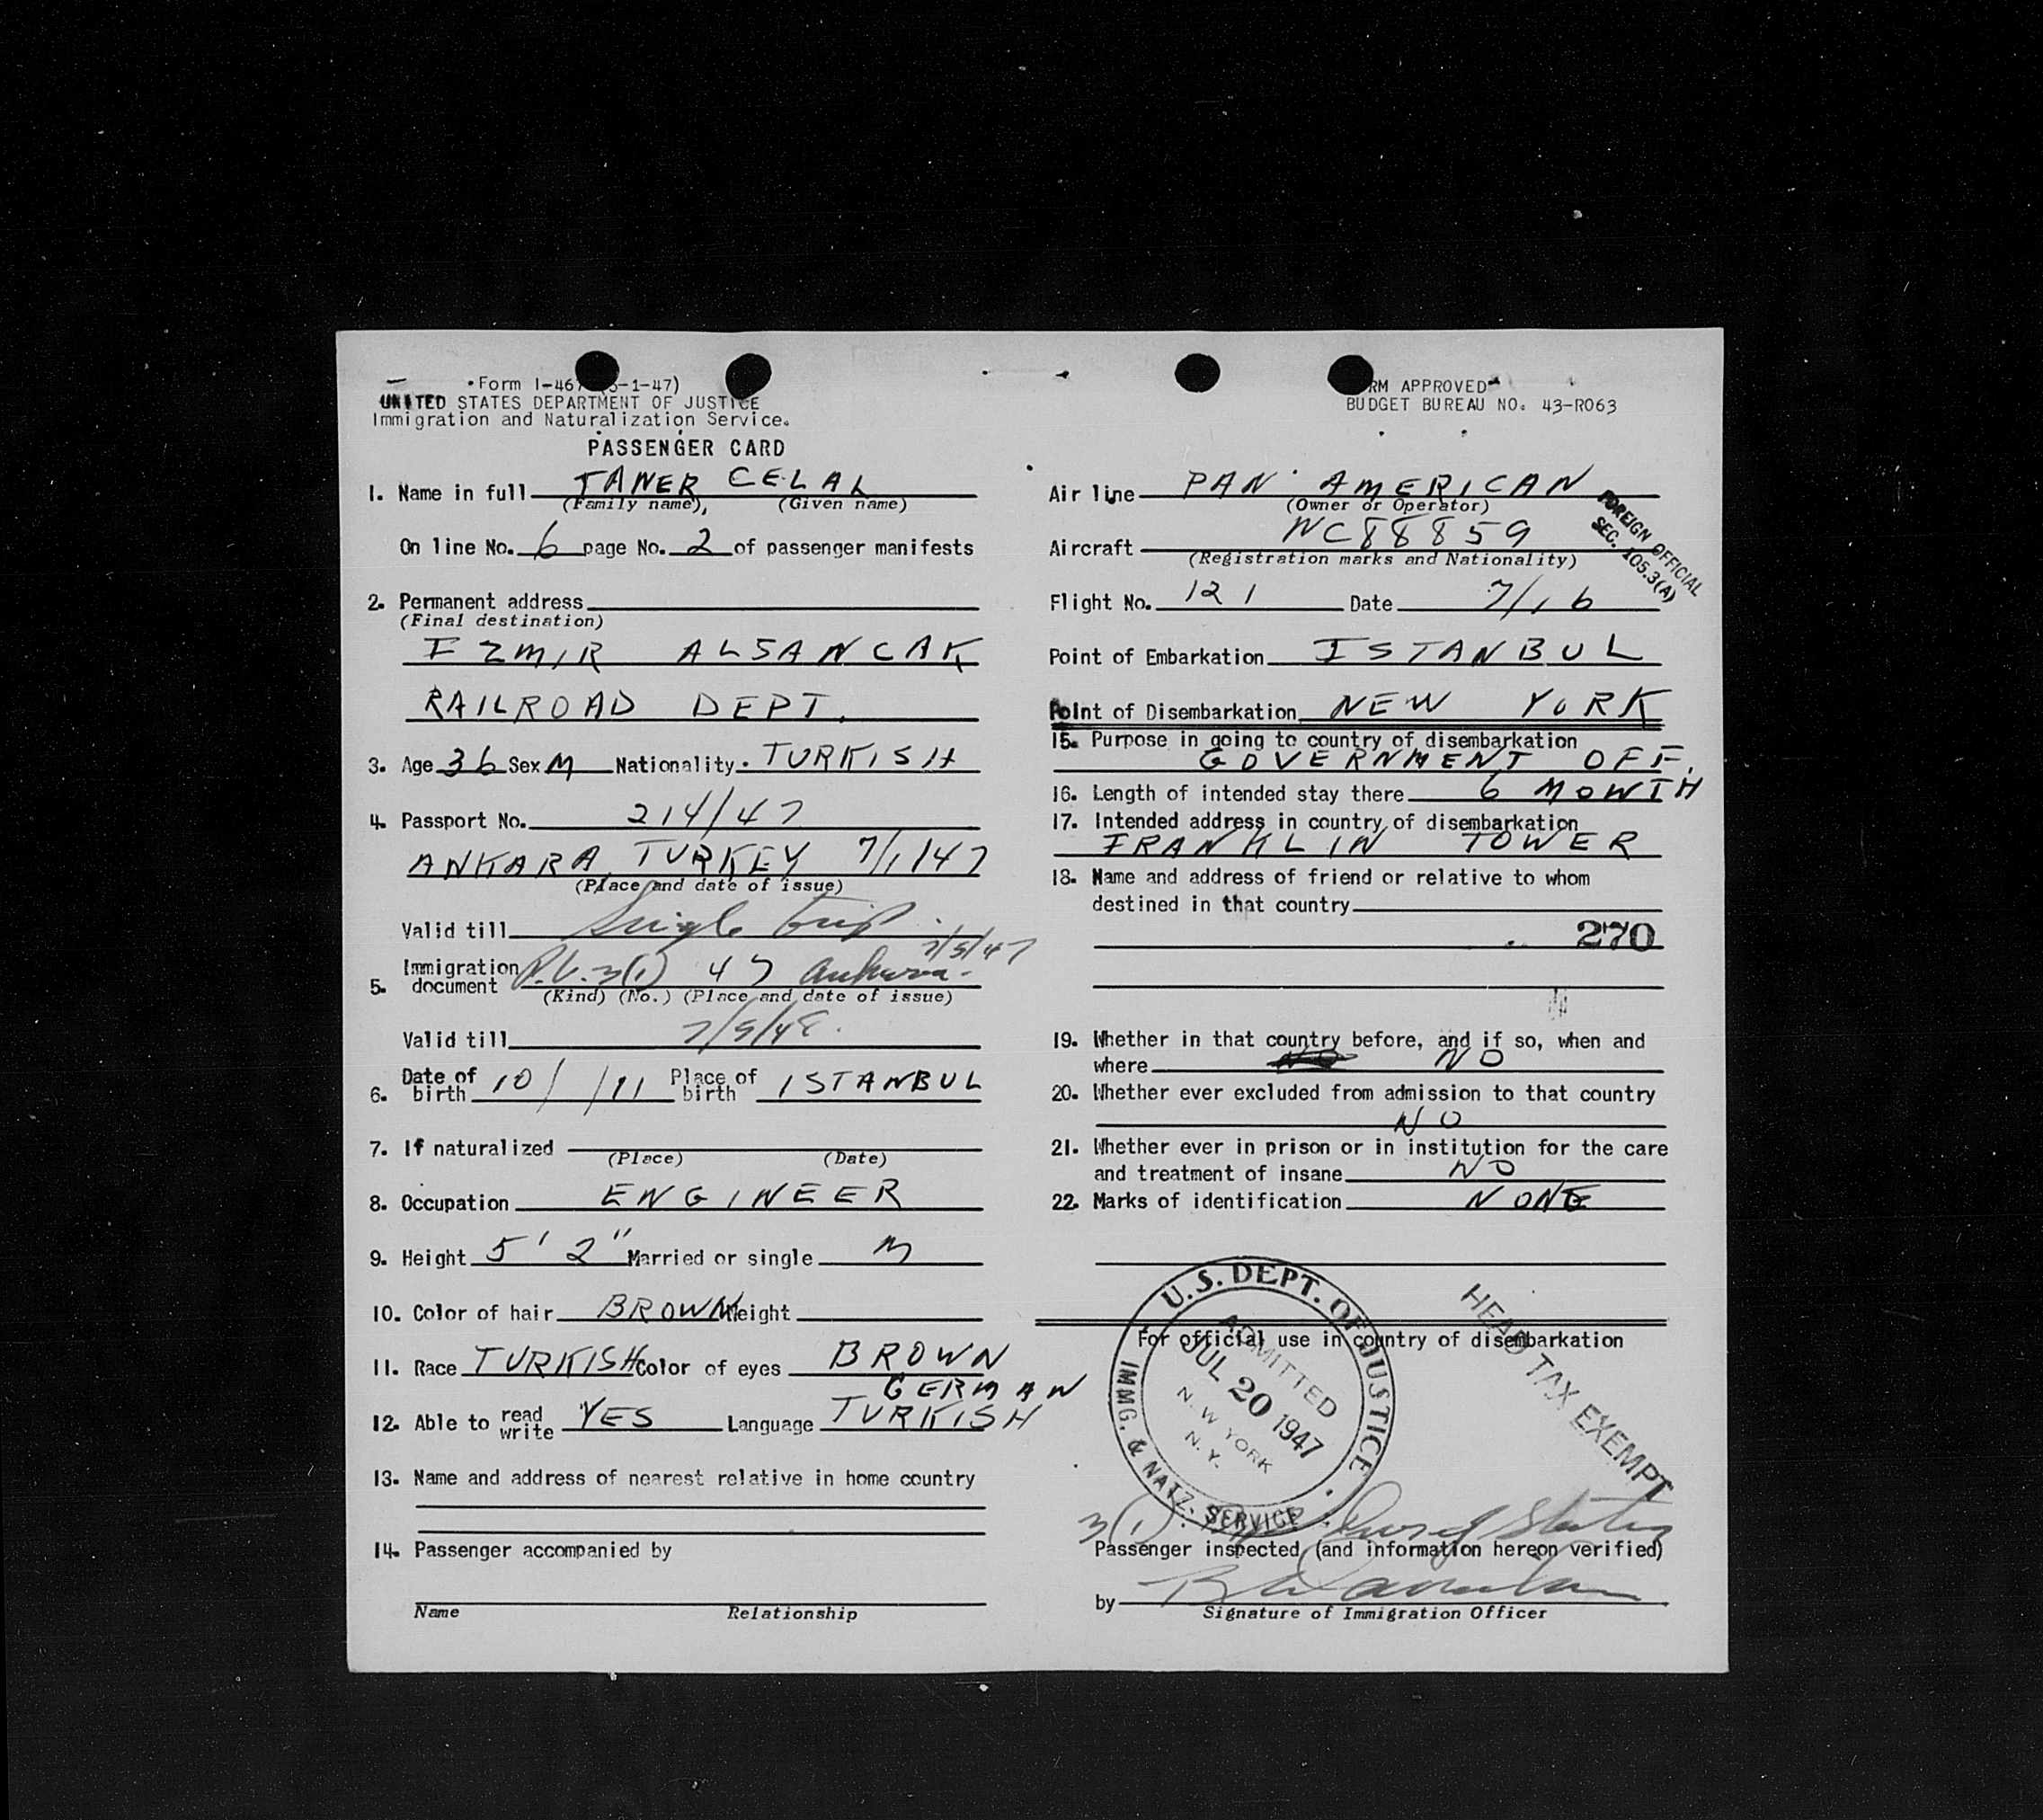 Form I-467 (5-1-47)
UNITED STATES DEPARTMENT OF JUSTICE
Immigration and Naturalization Service.
PASSENGER CARD
1. Name in full TANER CELAL
(Family name), (Given name)
On line No. 6 page No. 2 of passenger manifests
2. Permanent address
(Final destination)
IZMIR ALSANCAK
RAILROAD DEPT.
3. Age 36 Sex M Nationality. TURKISH
4. Passport No. 214/47
ANKARA, TURKEY 7/1/47
(Place and date of issue)
Valid till Single trip.
7/5/47
5. Immigration document P.V. 3(1) 47 Ankara
(Kind) (No.) (Place and date of issue)
Valid till 7/5/48.
6. Date of birth 10/ /11 Place of birth ISTANBUL
7. If naturalized
(Place) (Date)
8. Occupation ENGINEER
9. Height 5' 2" Married or single M
10. Color of hair BROWN Weight
11. Race TURKISH Color of eyes BROWN
GERMAN
12. Able to read write YES Language TURKISH
13. Name and address of nearest relative in home country
14. Passenger accompanied by
Name Relationship
FORM APPROVED
BUDGET BUREAU NO. 43-R063
Air line PAN AMERICAN
(Owner or Operator)
FOREIGN OFFICIAL
SEC. 105.3(A)
Aircraft NC88859
(Registration marks and Nationality)
Flight No. 121 Date 7/16
Point of Embarkation ISTANBUL
Point of Disembarkation NEW YORK
15. Purpose in going to country of disembarkation
GOVERNMENT OFF.
16. Length of intended stay there 6 MONTH
17. Intended address in country of disembarkation
FRANKLIN TOWER
18. Name and address of friend or relative to whom
destined in that country
270
19. Whether in that country before, and if so, when and
where NO
20. Whether ever excluded from admission to that country
NO
21. Whether ever in prison or in institution for the care
and treatment of insane NO
22. Marks of identification NONE
For official use in country of disembarkation
U.S. DEPT. OF JUSTICE
ADMITTED
JUL 20 1947
NEW YORK
N.Y.
IMMG. & NATZ. SERVICE
HEAD TAX EXEMPT
3(1)
Passenger inspected (and information hereon verified)
by
Signature of Immigration Officer